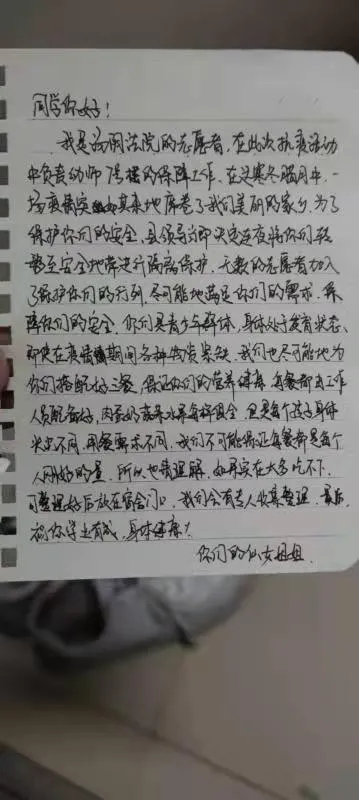 同学你好！
我是高明法院的志愿者，在此次抗疫活动
中负责幼师 隔 楼的保障工作，在这寒冬腊月中，一
场疫情突如其来地席卷了我们美丽的家乡，为了
保护你们的安全，县领导立即决定连夜将你们转
移至安全地带进行隔离保护，无数的志愿者加入
了保护你们的行列，尽可能地满足你们的需求，保
障你们的安全，你们是青少年群体，身体处于发育状态，
即使在疫情期间各种物资紧缺，我们也尽可能地为
你们搭配好三餐，保证你们的营养健康，每餐都由工作
人员配备好，肉蛋奶蔬菜水果每样俱全，但是每个孩子身体
状态不同，用餐需求不同，我们不可能保证每餐都是每个
人刚好的量，所以也请理解，如果实在太多吃不下，
可整理好后放在宿舍门口，我们会有专人收集整理，最后，
祝你学业有成，身体健康！
你们的仙女姐姐.